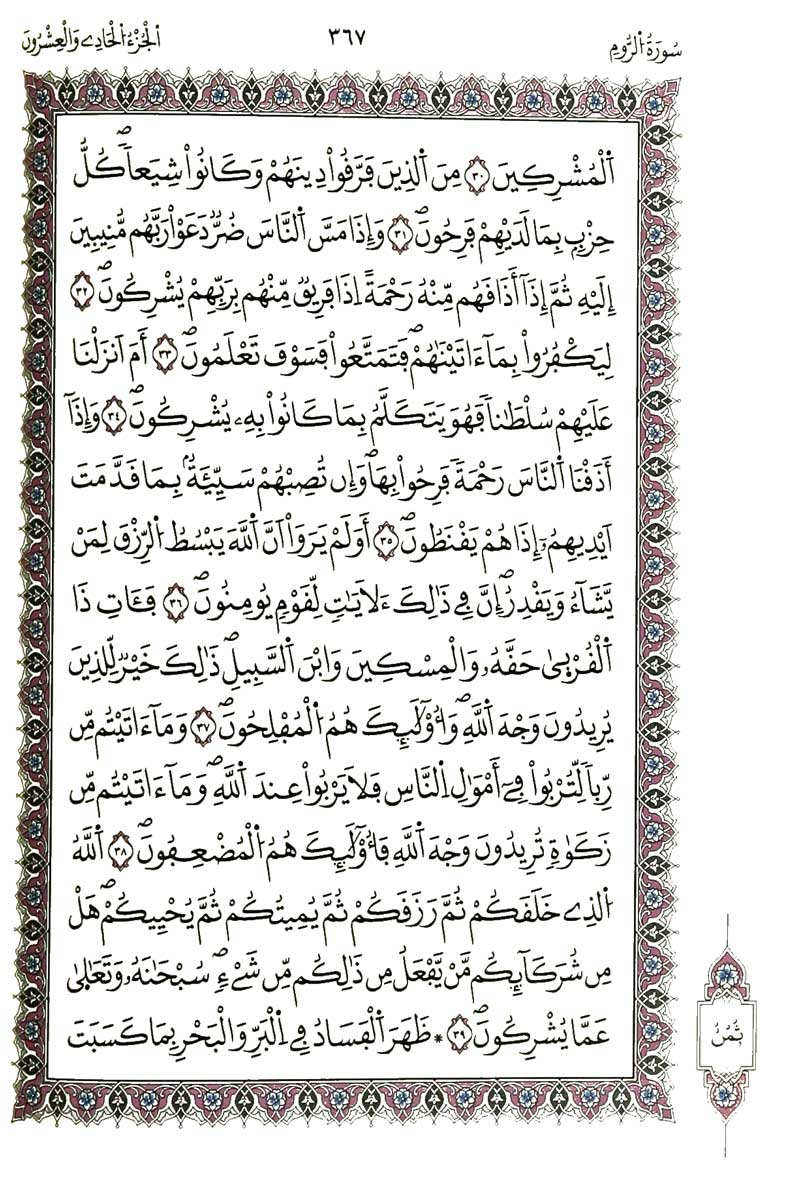 سُورَةُ الرُّومِ
٣٦٧
الْجُزْءُ الْحَادِے وَالْعِشْرُونَ
اَ۬لْمُشْرِكِينَ ٣٠ مِنَ اَ۬لذِينَ فَرَّقُواْ دِينَهُمْ وَكَانُواْ شِيَعاٗۖ كُلُّ
حِزْبِۢ بِمَا لَدَيْهِمْ فَرِحُونَۖ ٣١ وَإِذَا مَسَّ اَ۬لنَّاسَ ضُرّٞ دَعَوْاْ رَبَّهُم مُّنِيبِينَ
إِلَيْهِ ثُمَّ إِذَآ أَذَاقَهُم مِّنْهُ رَحْمَةً اِذَا فَرِيقٞ مِّنْهُم بِرَبِّهِمْ يُشْرِكُونَۖ ٣٢
لِيَكْفُرُواْ بِمَآ ءَاتَيْنَٰهُمْۖ فَتَمَتَّعُواْ فَسَوْفَ تَعْلَمُونَۖ ٣٣ أَمَ اَنزَلْنَا
عَلَيْهِمْ سُلْطَٰناٗ فَهُوَ يَتَكَلَّمُ بِمَا كَانُواْ بِهِۦ يُشْرِكُونَۖ ٣٤ وَإِذَآ
أَذَقْنَا اَ۬لنَّاسَ رَحْمَةٗ فَرِحُواْ بِهَاۖ وَإِن تُصِبْهُمْ سَيِّئَةُۢ بِمَا قَدَّمَتَ
اَيْدِيهِمُۥٓ إِذَا هُمْ يَقْنَطُونَۖ ٣٥ أَوَلَمْ يَرَوَاْ اَنَّ اَ۬للَّهَ يَبْسُطُ اُ۬لرِّزْقَ لِمَنْ
يَّشَآءُ وَيَقْدِرُۖ إِنَّ فِے ذَٰلِكَ ءَلَايَٰتٖ لِّقَوْمٖ يُومِنُونَۖ ٣٦ فَـَٔاتِ ذَا
اَ۬لْقُرْبىٰ حَقَّهُۥ وَالْمِسْكِينَ وَابْنَ اَ۬لسَّبِيلِۖ ذَٰلِكَ خَيْرٞ لِّلذِينَ
يُرِيدُونَ وَجْهَ اَ۬للَّهِۖ وَأُوْلَٰٓئِكَ هُمُ اُ۬لْمُفْلِحُونَۖ ٣٧ وَمَآ ءَاتَيْتُم مِّن
رِّباٗ لِّتُرْبُواْ فِےٓ أَمْوَٰلِ اِ۬لنَّاسِ فَلَا يَرْبُواْ عِندَ اَ۬للَّهِۖ وَمَآ ءَاتَيْتُم مِّن
زَكَوٰةٖ تُرِيدُونَ وَجْهَ اَ۬للَّهِ فَأُوْلَٰٓئِكَ هُمُ اُ۬لْمُضْعِفُونَۖ ٣٨ اَ۬للَّهُ
اُ۬لذِے خَلَقَكُمْ ثُمَّ رَزَقَكُمْ ثُمَّ يُمِيتُكُمْ ثُمَّ يُحْيِيكُمْۖ هَلْ
مِن شُرَكَآئِكُم مَّنْ يَّفْعَلُ مِن ذَٰلِكُم مِّن شَےْءٖۖ سُبْحَٰنَهُۥ وَتَعَٰلىٰ
عَمَّا يُشْرِكُونَۖ ٣٩ * ظَهَرَ اَ۬لْفَسَادُ فِے اِ۬لْبَرِّ وَالْبَحْرِ بِمَا كَسَبَتَ
ثُمُنُ